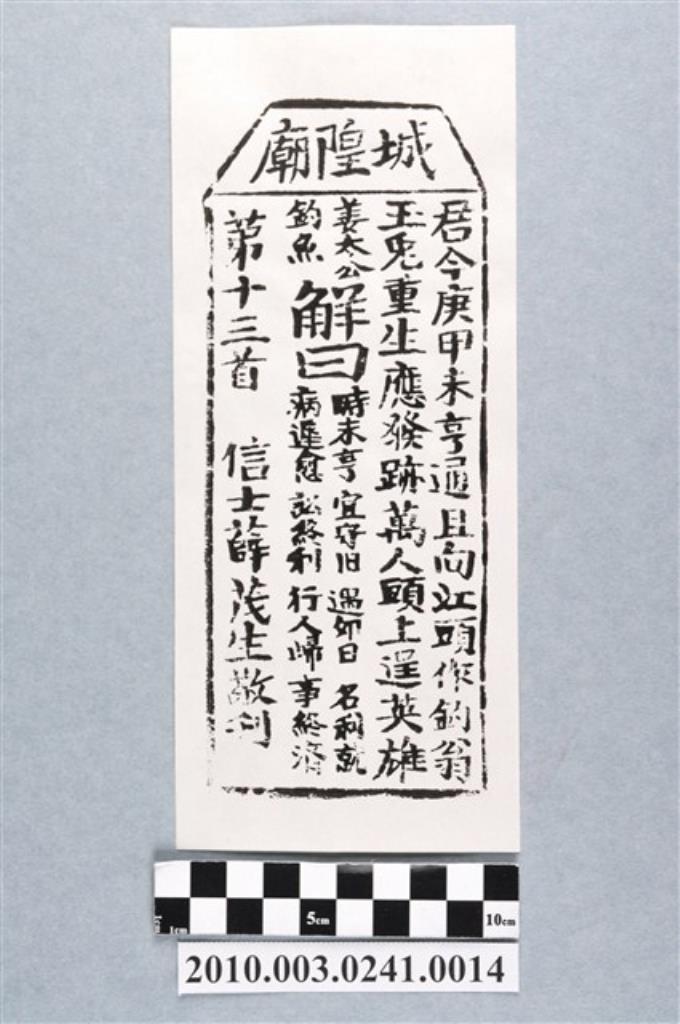 城隍廟
君今庚甲未亨通且向江頭作釣翁
玉兎重生應發跡萬人頭上逞英雄
姜太公
釣魚
解曰
時未亨 宜守旧 遇卯日 名利就
病遲愈 訟終利 行人歸 事終濟
第十三首 信士薛茂生敬刊
1cm 5cm 10cm
2010.003.0241.0014